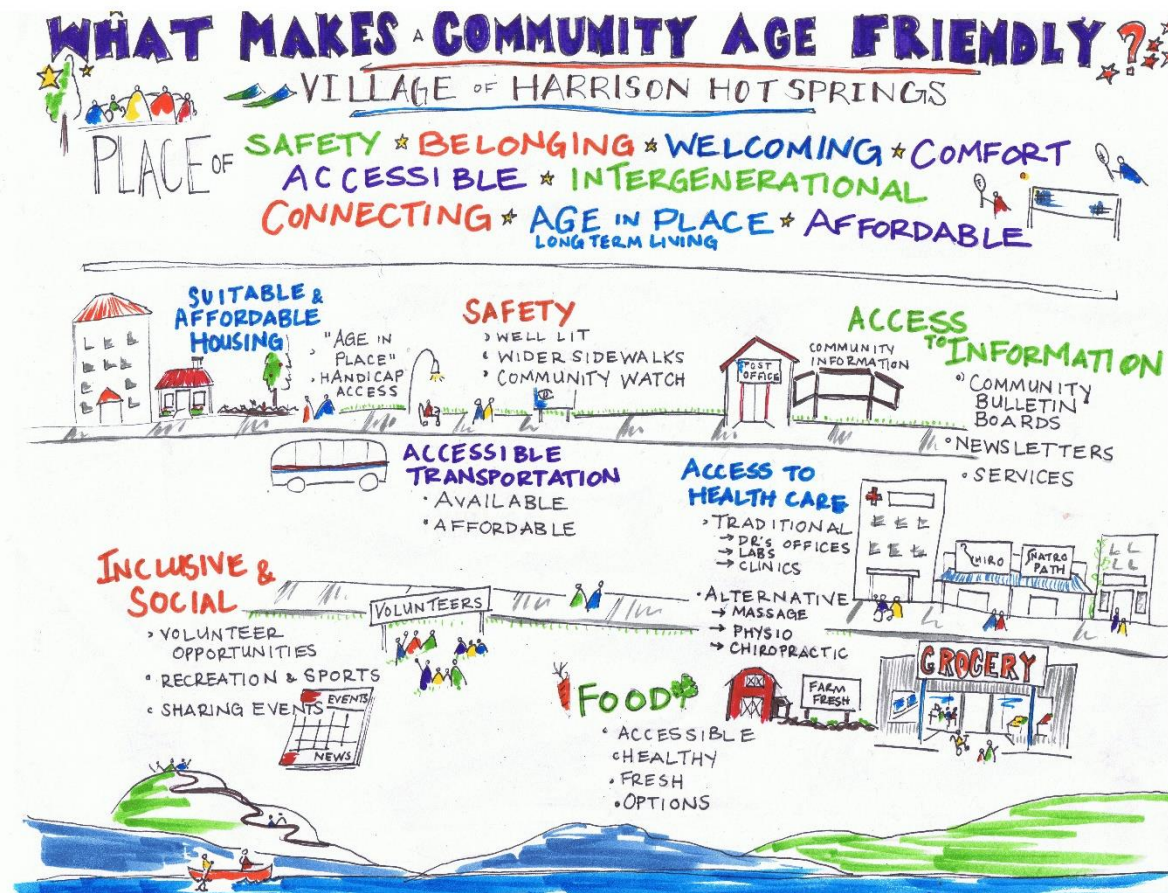 WHAT MAKES A COMMUNITY AGE FRIENDLY?
VILLAGE OF HARRISON HOT SPRINGS
PLACE OF
SAFETY * BELONGING * WELCOMING * COMFORT
ACCESSIBLE * INTERGENERATIONAL
CONNECTING * AGE IN PLACE * AFFORDABLE
LONG TERM LIVING
SUITABLE &
AFFORDABLE
HOUSING
"AGE IN
PLACE"
HANDICAP
ACCESS
SAFETY
WELL LIT
WIDER SIDEWALKS
COMMUNITY WATCH
POST
OFFICE
COMMUNITY
INFORMATION
ACCESS
TO INFORMATION
• COMMUNITY
BULLETIN
BOARDS
• NEWSLETTERS
• SERVICES
ACCESSIBLE
TRANSPORTATION
• AVAILABLE
• AFFORDABLE
ACCESS TO
HEALTH CARE
> TRADITIONAL
→ DR'S OFFICES
→ LABS
→ CLINICS
• ALTERNATIVE
→ MASSAGE
→ PHYSIO
→ CHIROPRACTIC
CHIRO
NATRO
PATH
INCLUSIVE &
SOCIAL
> VOLUNTEER
OPPORTUNITIES
• RECREATION & SPORTS
• SHARING EVENTS
VOLUNTEERS
EVENTS
NEWS
FOOD
• ACCESSIBLE
• HEALTHY
• FRESH
• OPTIONS
FARM
FRESH
GROCERY